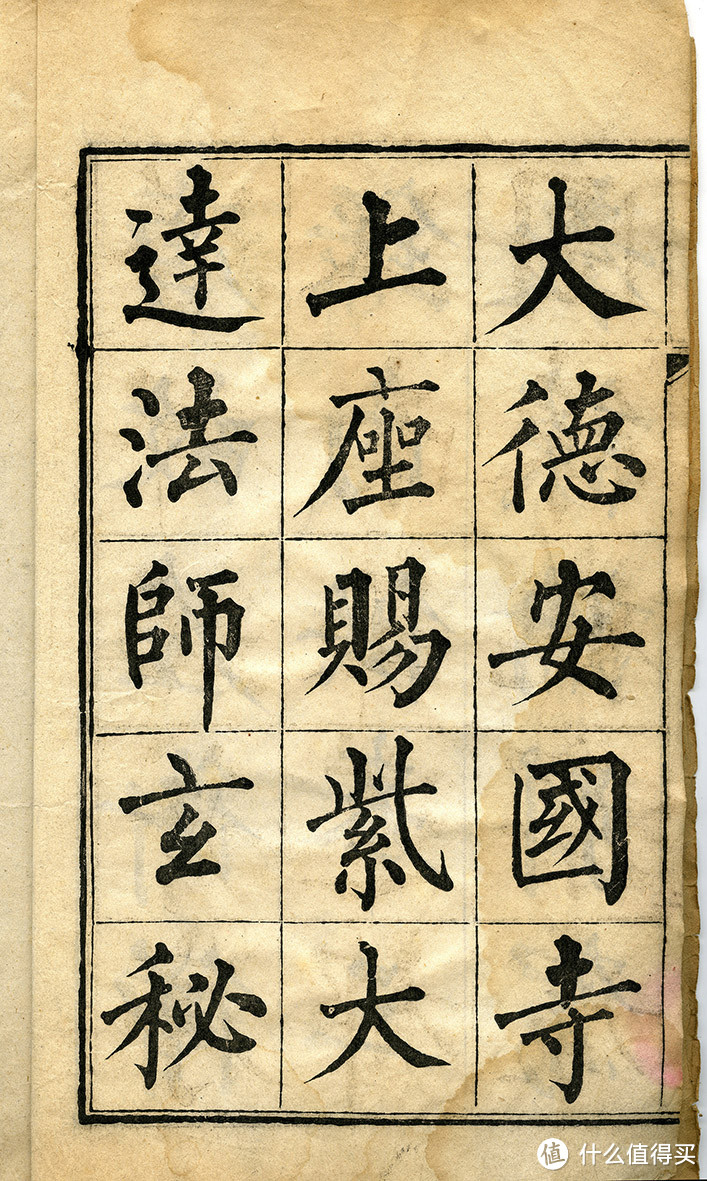 大德安國寺
上座賜紫大
達法師玄秘
值 什么值得买